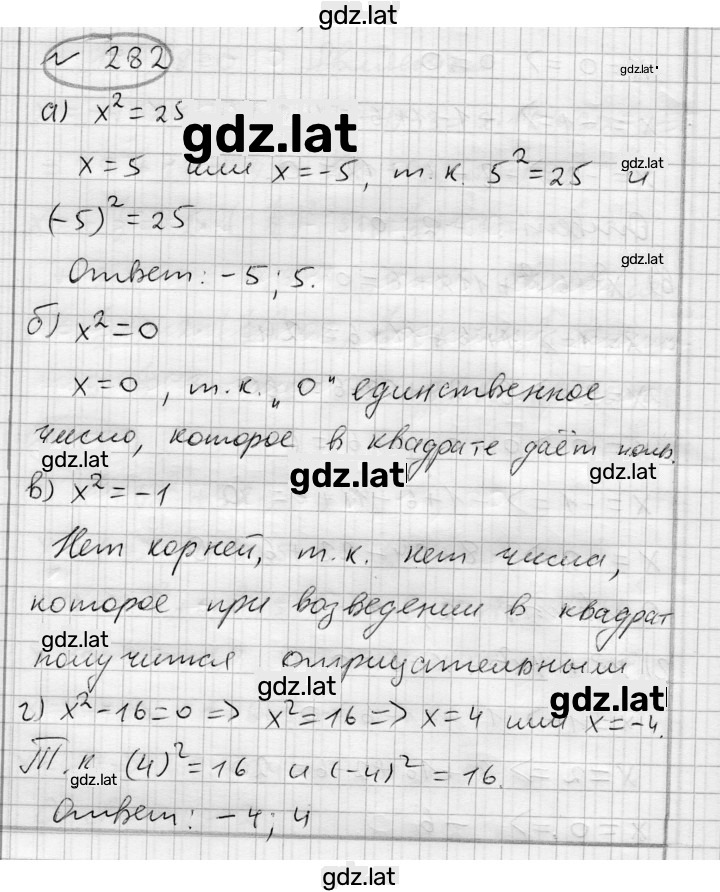 gdz.lat
№ 282
gdz.lat
а) x² = 25
gdz.lat
x = 5 или x = -5, т.к. 5² = 25 и
gdz.lat
(-5)² = 25
gdz.lat
Ответ: -5; 5.
б) x² = 0
x = 0, т.к. „0" единственное
число, которое в квадрате даёт ноль.
gdz.lat
gdz.lat
gdz.lat
в) x² = -1
Нет корней, т.к. нет числа,
которое при возведении в квадрат
gdz.lat
получится отрицательным
gdz.lat
gdz.lat
г) x² - 16 = 0 => x² = 16 => x = 4 или x = -4.
Т.к (4)² = 16 и (-4)² = 16.
gdz.lat
Ответ: -4; 4
gdz.lat